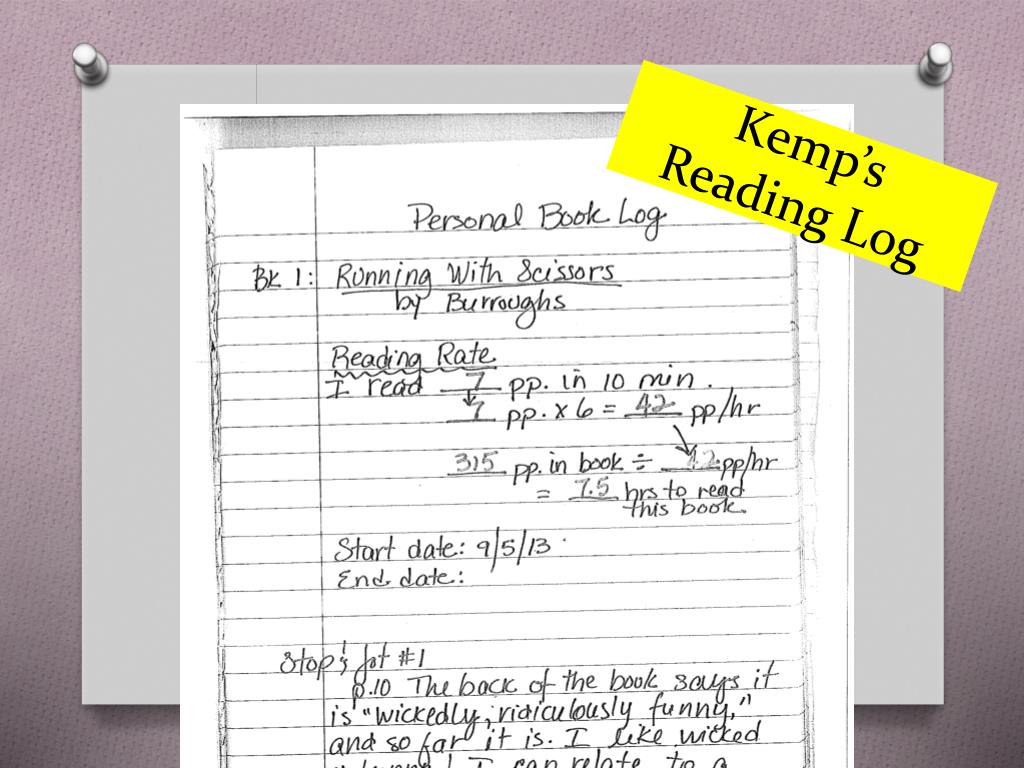 Kemp’s
Reading Log
Personal Book Log
Bk 1: Running With Scissors
by Burroughs
Reading Rate
I read 7 pp. in 10 min.
7 pp. x 6 = 42 pp/hr
315 pp. in book ÷ 42 pp/hr
= 7.5 hrs to read
this book.
Start date: 9/5/13
End date:
Stop & Jot #1
p.10 The back of the book says it
is "wickedly, ridiculously funny,"
and so far it is. I like wicked
I can relate to a